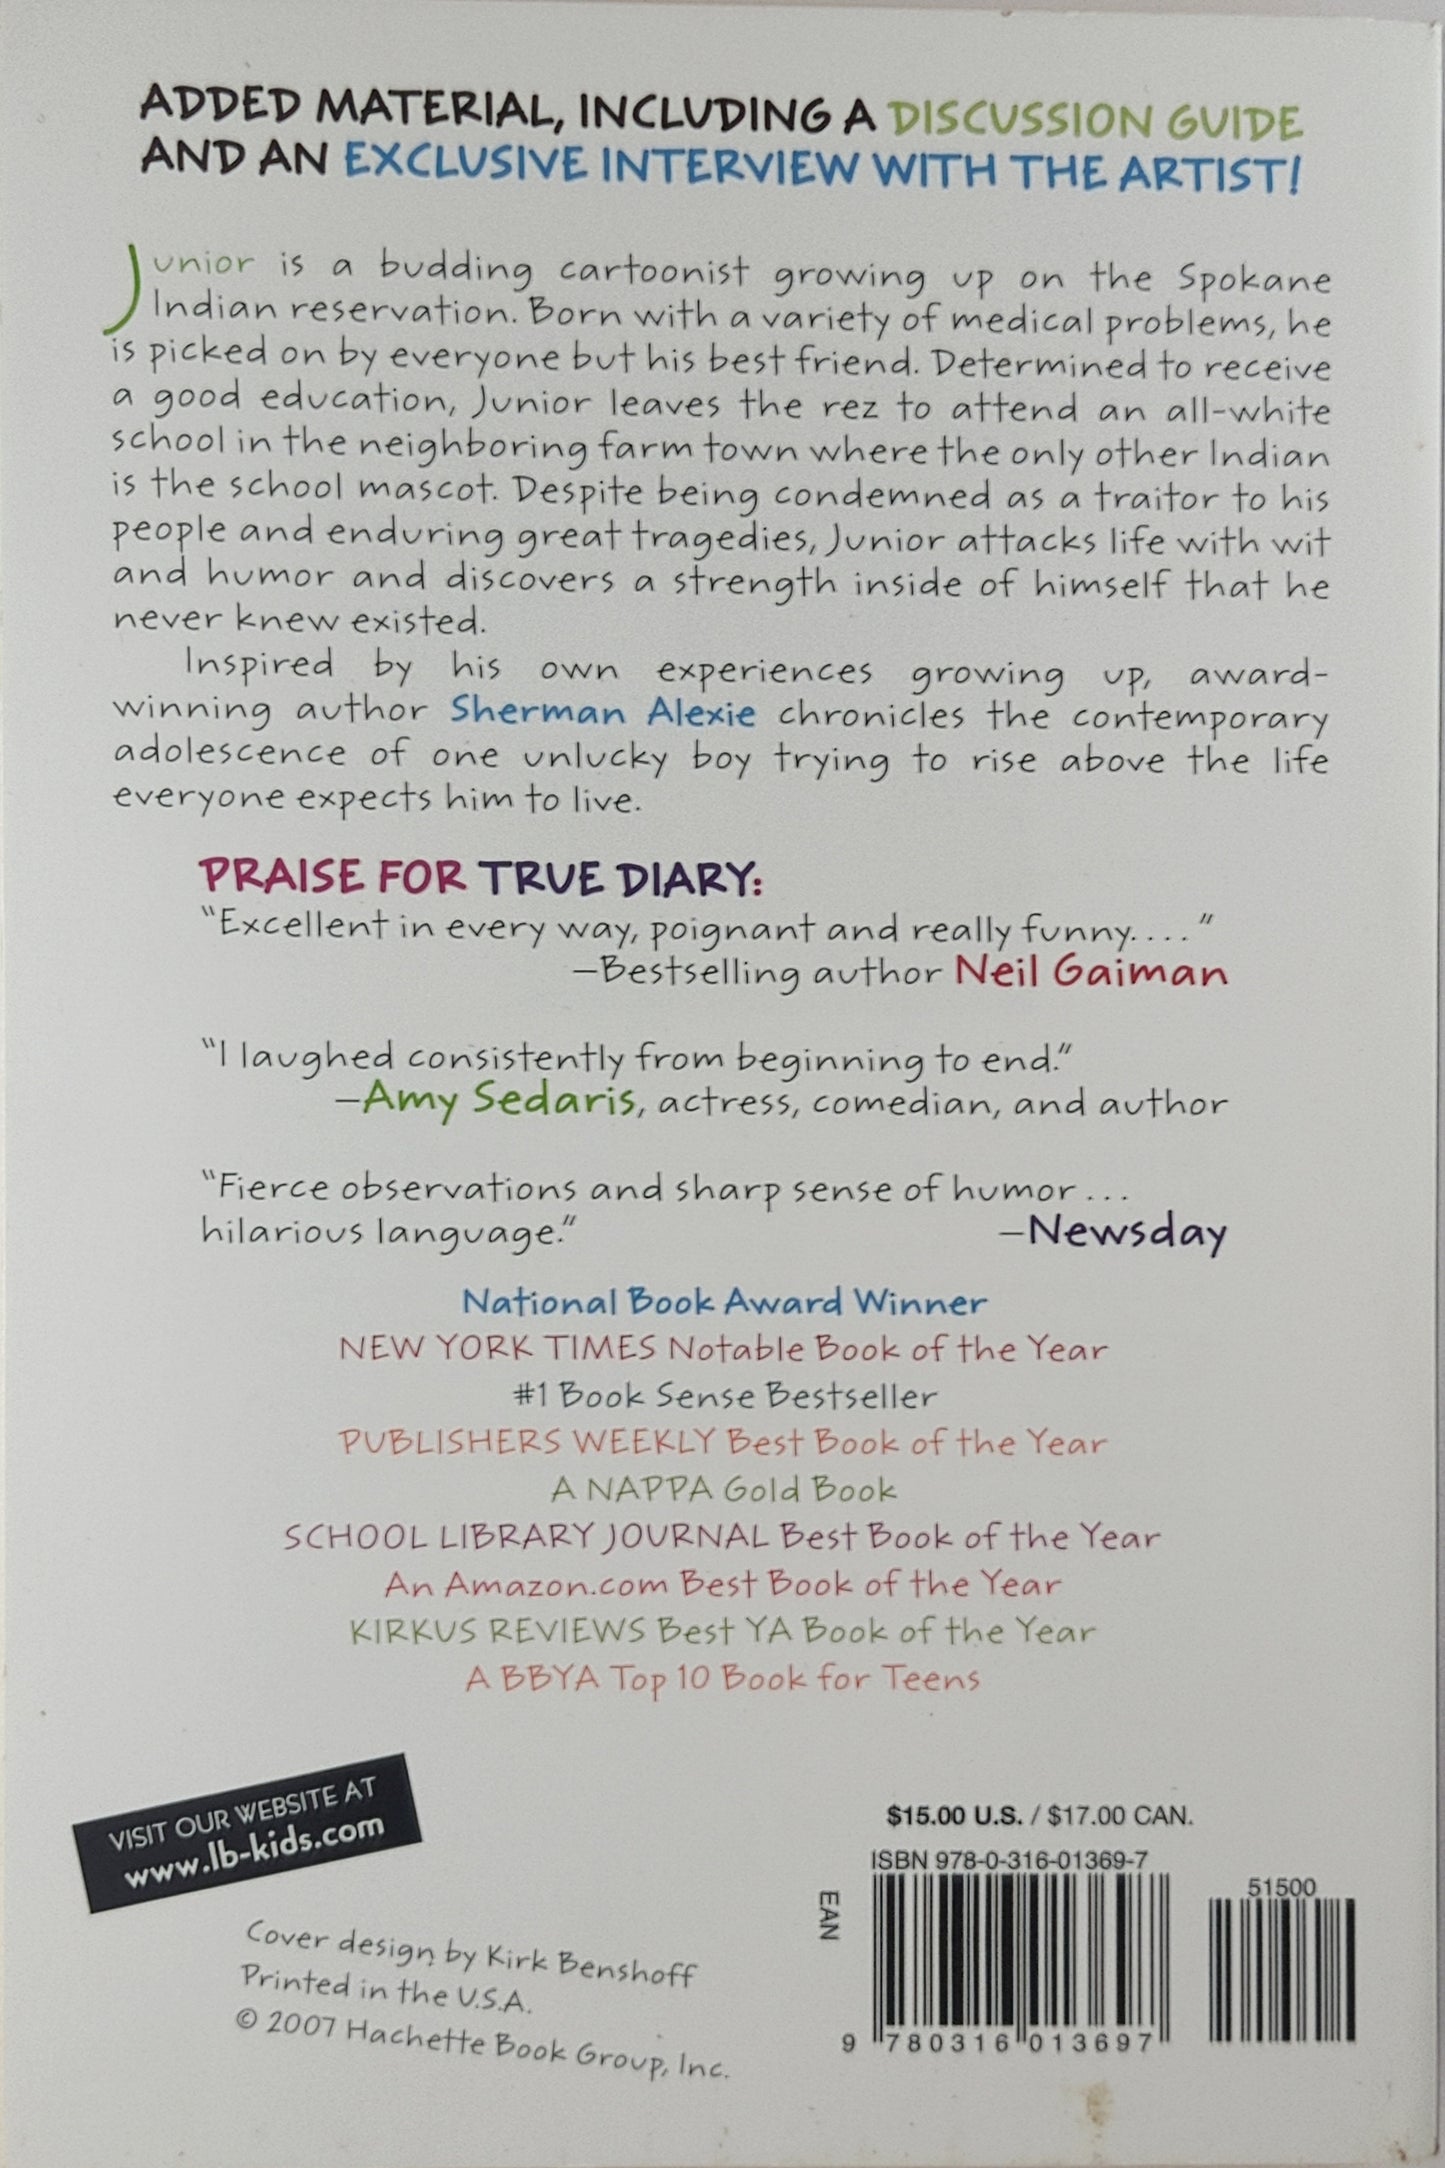 ADDED MATERIAL, INCLUDING A DISCUSSION GUIDE
AND AN EXCLUSIVE INTERVIEW WITH THE ARTIST!
Junior is a budding cartoonist growing up on the Spokane
Indian reservation. Born with a variety of medical problems, he
is picked on by everyone but his best friend. Determined to receive
a good education, Junior leaves the rez to attend an all-white
school in the neighboring farm town where the only other Indian
is the school mascot. Despite being condemned as a traitor to his
people and enduring great tragedies, Junior attacks life with wit
and humor and discovers a strength inside of himself that he
never knew existed.
Inspired by his own experiences growing up, award-
winning author Sherman Alexie chronicles the contemporary
adolescence of one unlucky boy trying to rise above the life
everyone expects him to live.
PRAISE FOR TRUE DIARY:
"Excellent in every way, poignant and really funny. . . . "
—Bestselling author Neil Gaiman
"I laughed consistently from beginning to end."
—Amy Sedaris, actress, comedian, and author
"Fierce observations and sharp sense of humor . . .
hilarious language." —Newsday
National Book Award Winner
NEW YORK TIMES Notable Book of the Year
#1 Book Sense Bestseller
PUBLISHERS WEEKLY Best Book of the Year
A NAPPA Gold Book
SCHOOL LIBRARY JOURNAL Best Book of the Year
An Amazon.com Best Book of the Year
KIRKUS REVIEWS Best YA Book of the Year
A BBYA Top 10 Book for Teens
VISIT OUR WEBSITE AT
www.lb-kids.com
Cover design by Kirk Benshoff
Printed in the U.S.A.
© 2007 Hachette Book Group, Inc.
$15.00 U.S. / $17.00 CAN.
ISBN 978-0-316-01369-7
51500
EAN
9 780316 013697